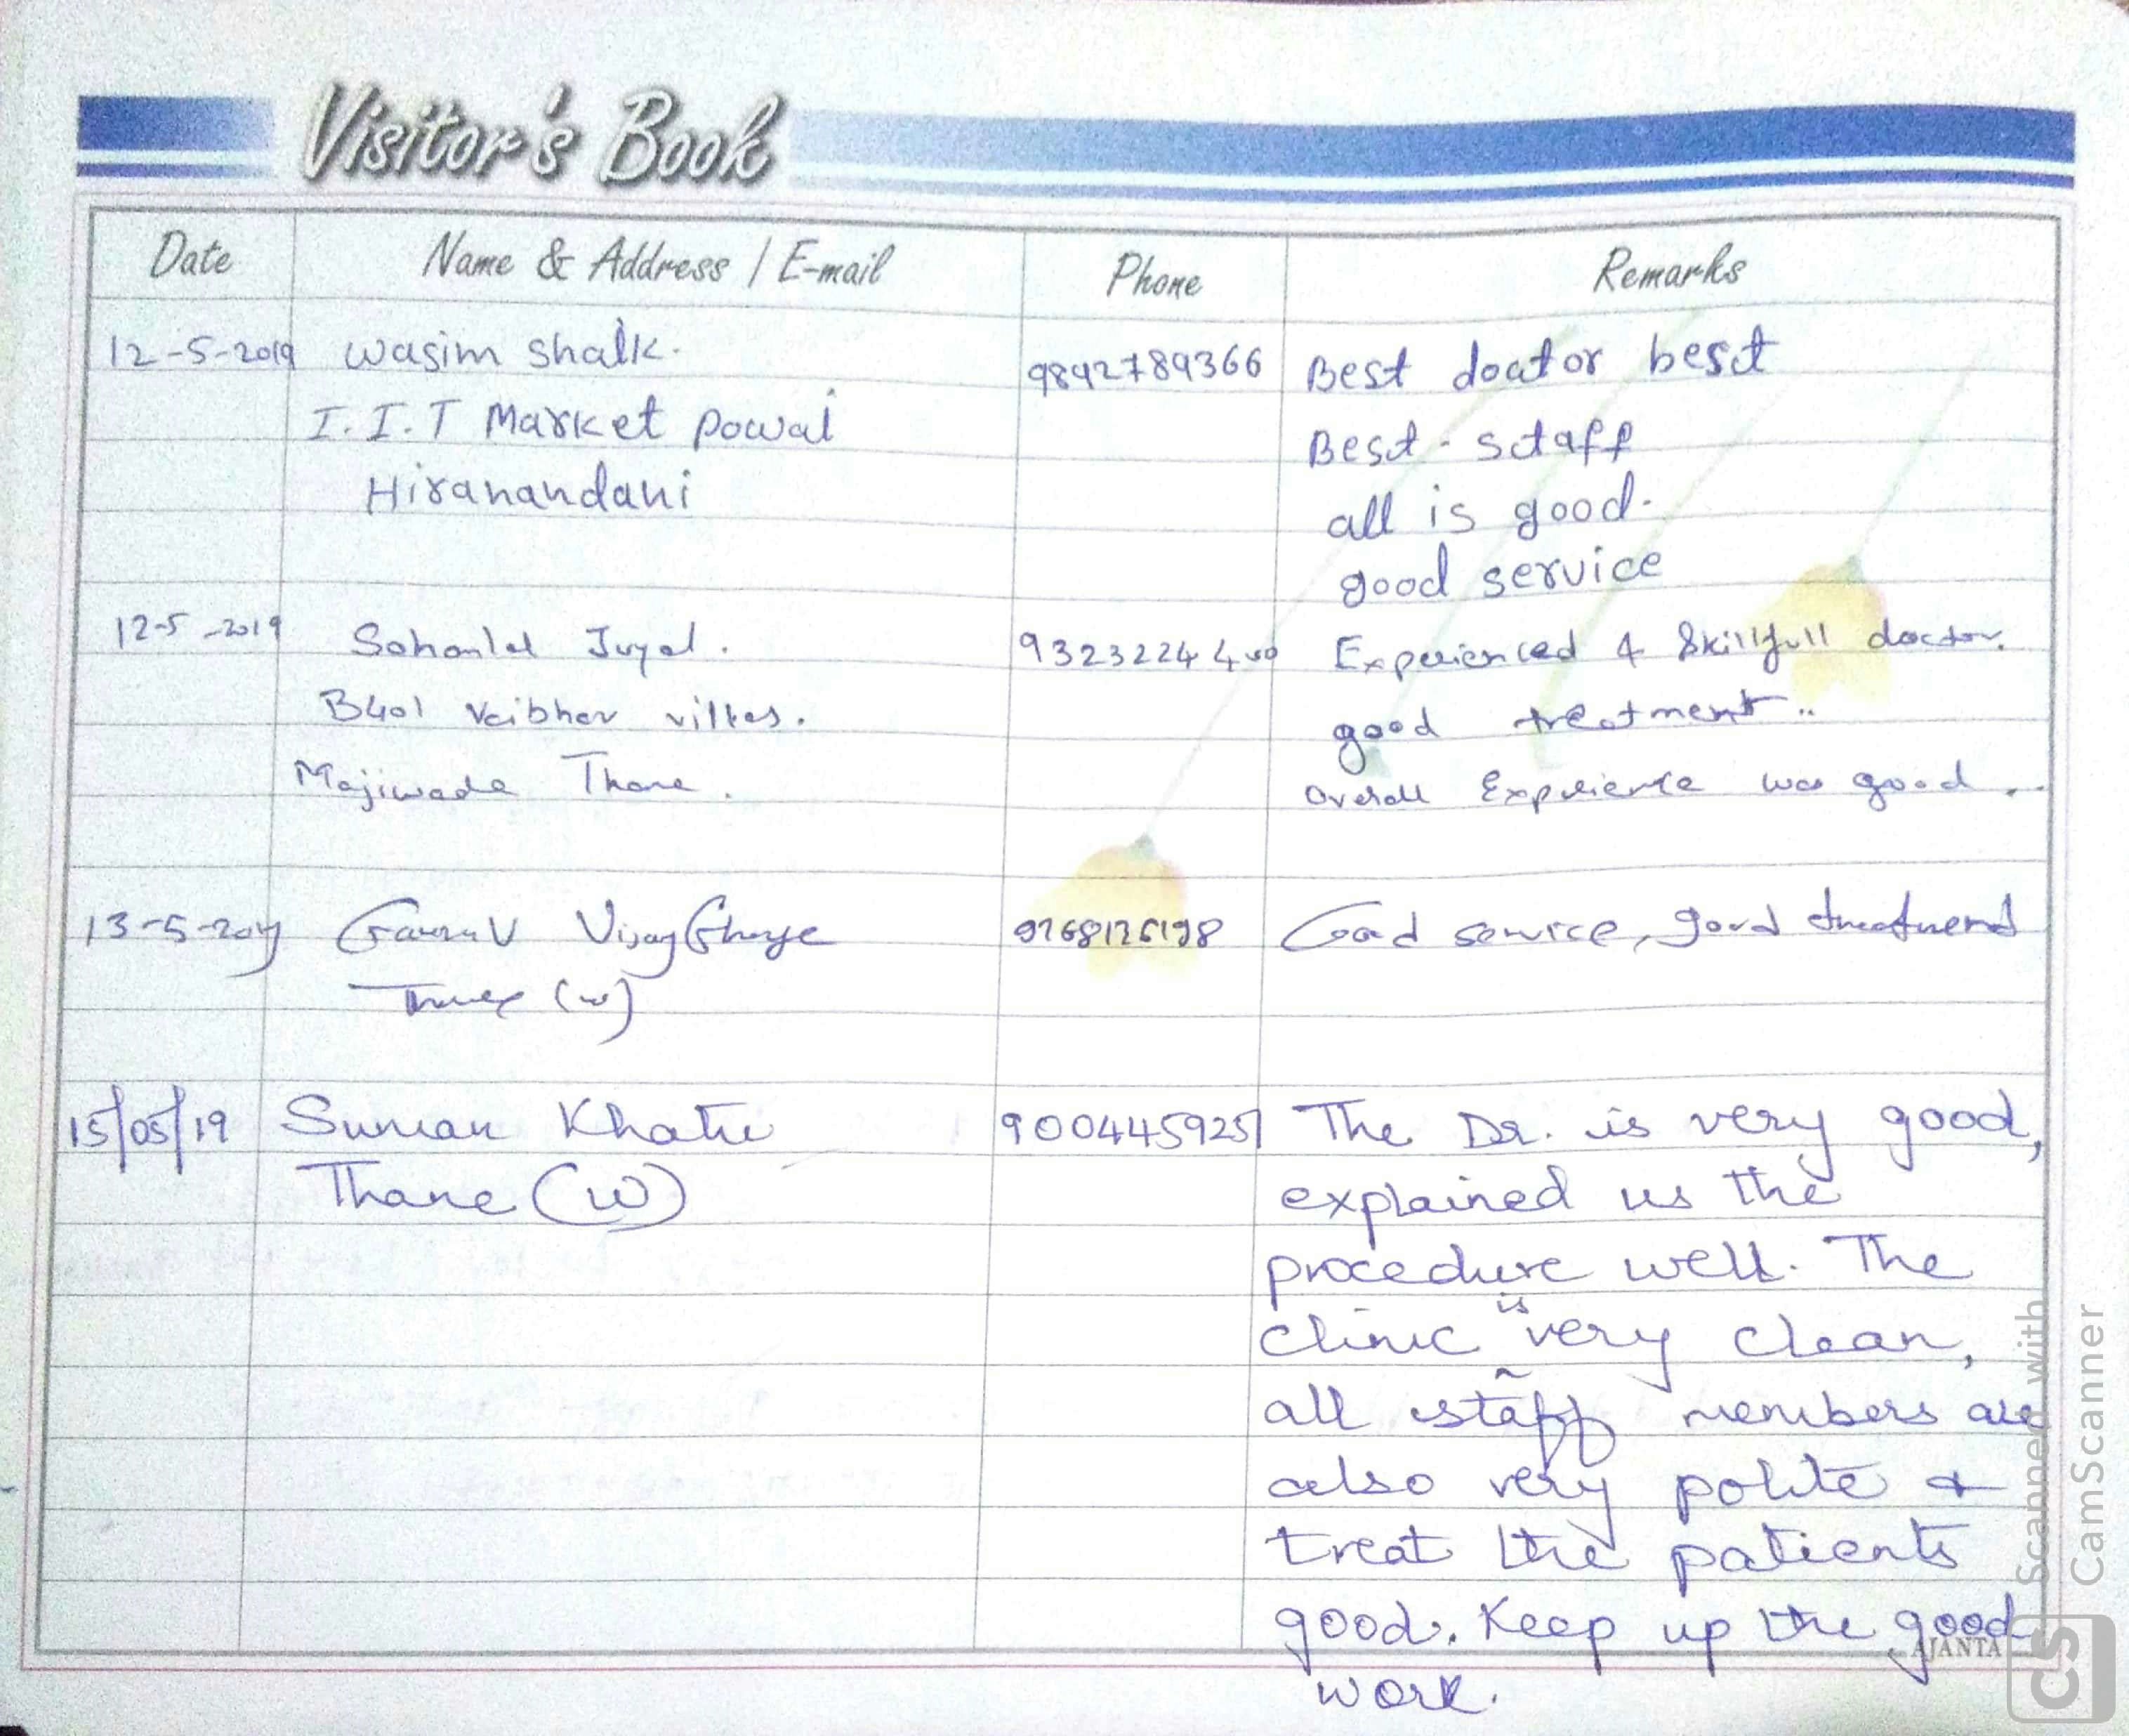 Visitor's Book
Date Name & Address / E-mail Phone Remarks
12-5-2019 wasim shaik. 9842789366 Best doator besct
I.I.T Market powai Besct - sctaff
Hiranandani all is good.
good service
12-5-2019 Sohanlal Juyal. 9323224400 Experienced & Skillfull doctor.
B401 Vaibhav villas. good treatment..
Majiwada Thane. Overall Experience was good..
13-5-2019 Gaurav Vijay Good service, good treatment
Thane (w)
15/05/19 Suman Khatri 9004459251 The Dr. is very good,
Thane (W) explained us the
procedure well. The
clinic is very clean,
all staff members are
also very polite &
treat the patients
good. Keep up the good
work.
AJANTA
Scanned with
CamScanner
CS